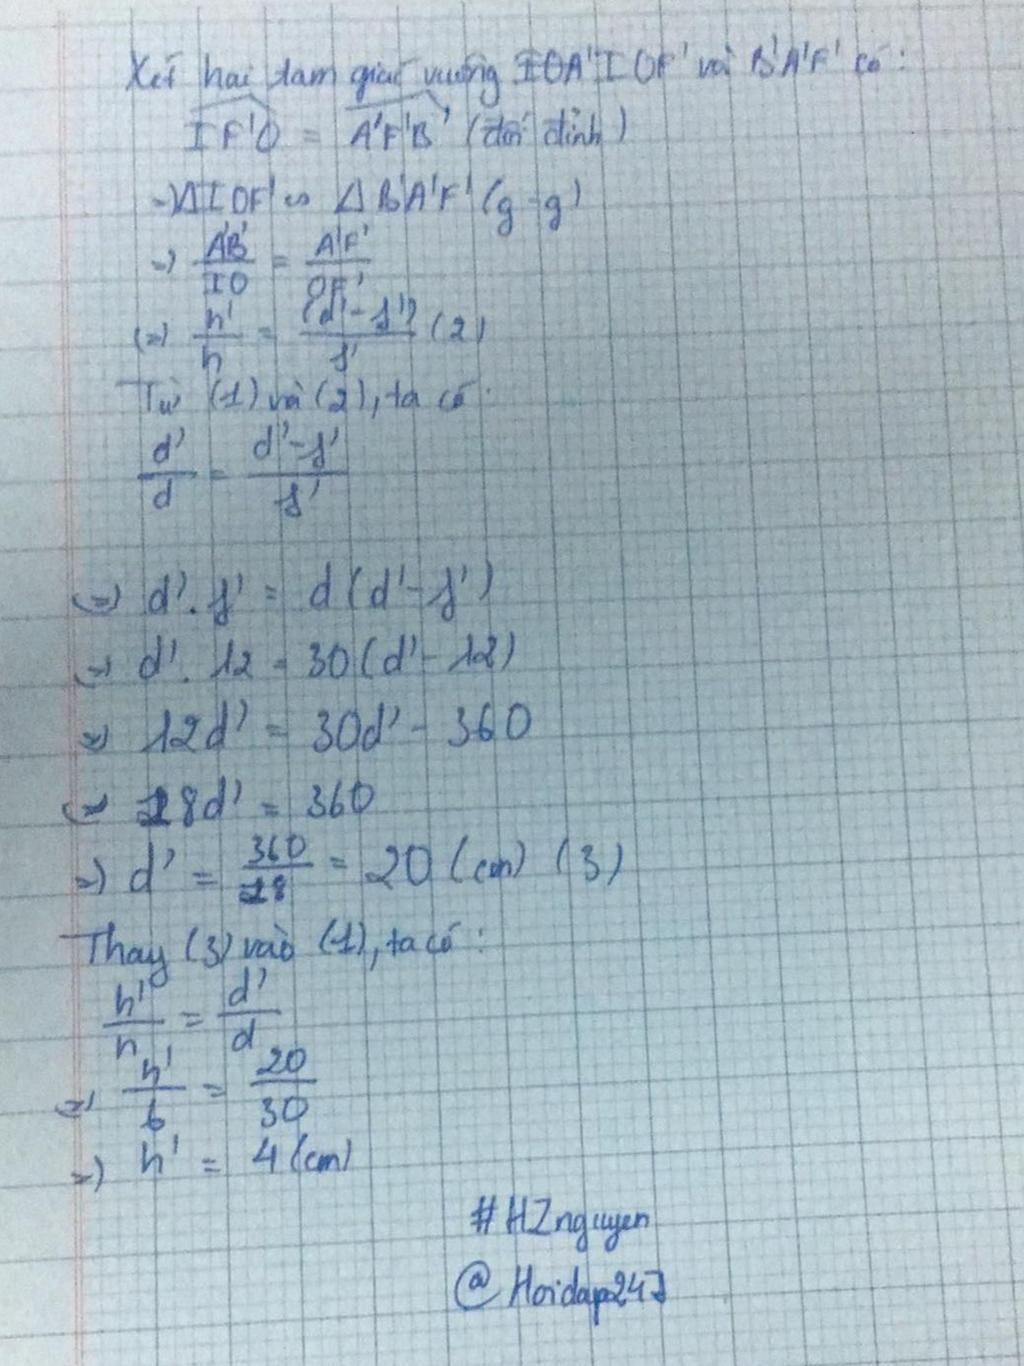 Xét hai tam giác vuông IOF' và B'A'F' có:
IF'O = A'F'B' (đối đỉnh)
=> ΔIOF' ∽ ΔB'A'F' (g-g)
=> A'B'/IO = A'F'/OF'
(=) h'/h = (d'-f')/f' (2)
Từ (1) và (2), ta có:
d'/d = d'-f'/f'
(=) d'.f' = d(d'-f')
(=) d'.12 = 30(d'-12)
=> 12d' = 30d' - 360
(=) 18d' = 360
=> d' = 360/18 = 20 (cm) (3)
Thay (3) vào (1), ta có:
h'/h = d'/d
=> h'/6 = 20/30
=> h' = 4 (cm)
#HZnguyen
@Hoidap247